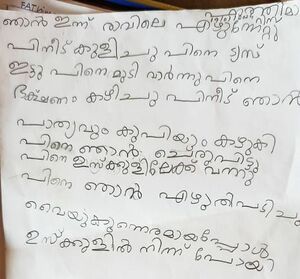 ഞാൻ ഇന്ന് രാവിലെ എഴുന്നേറ്റു
പിനീട് കുളിച്ചു പിനെ ഡ്രസ്
ഇട്ടു പിനെ മുടി വാർന്നു പിനെ
ഭക്ഷണം കഴിച്ചു പിനീട് ഞാൻ
പാത്രവും കുപിയും കഴുകി
പിനെ ഞാൻ ചെരുപിട്ടു
പിനെ ഇസ്ക്കുളിലേക്ക് വന്നു
പിനെ ഞാൻ എഴുതി പടിച്ചു
വൈയുക്കുന്നെരമായപ്പോൾ
ഉസ്ക്കുളിൽ നിന്ന് പോയി